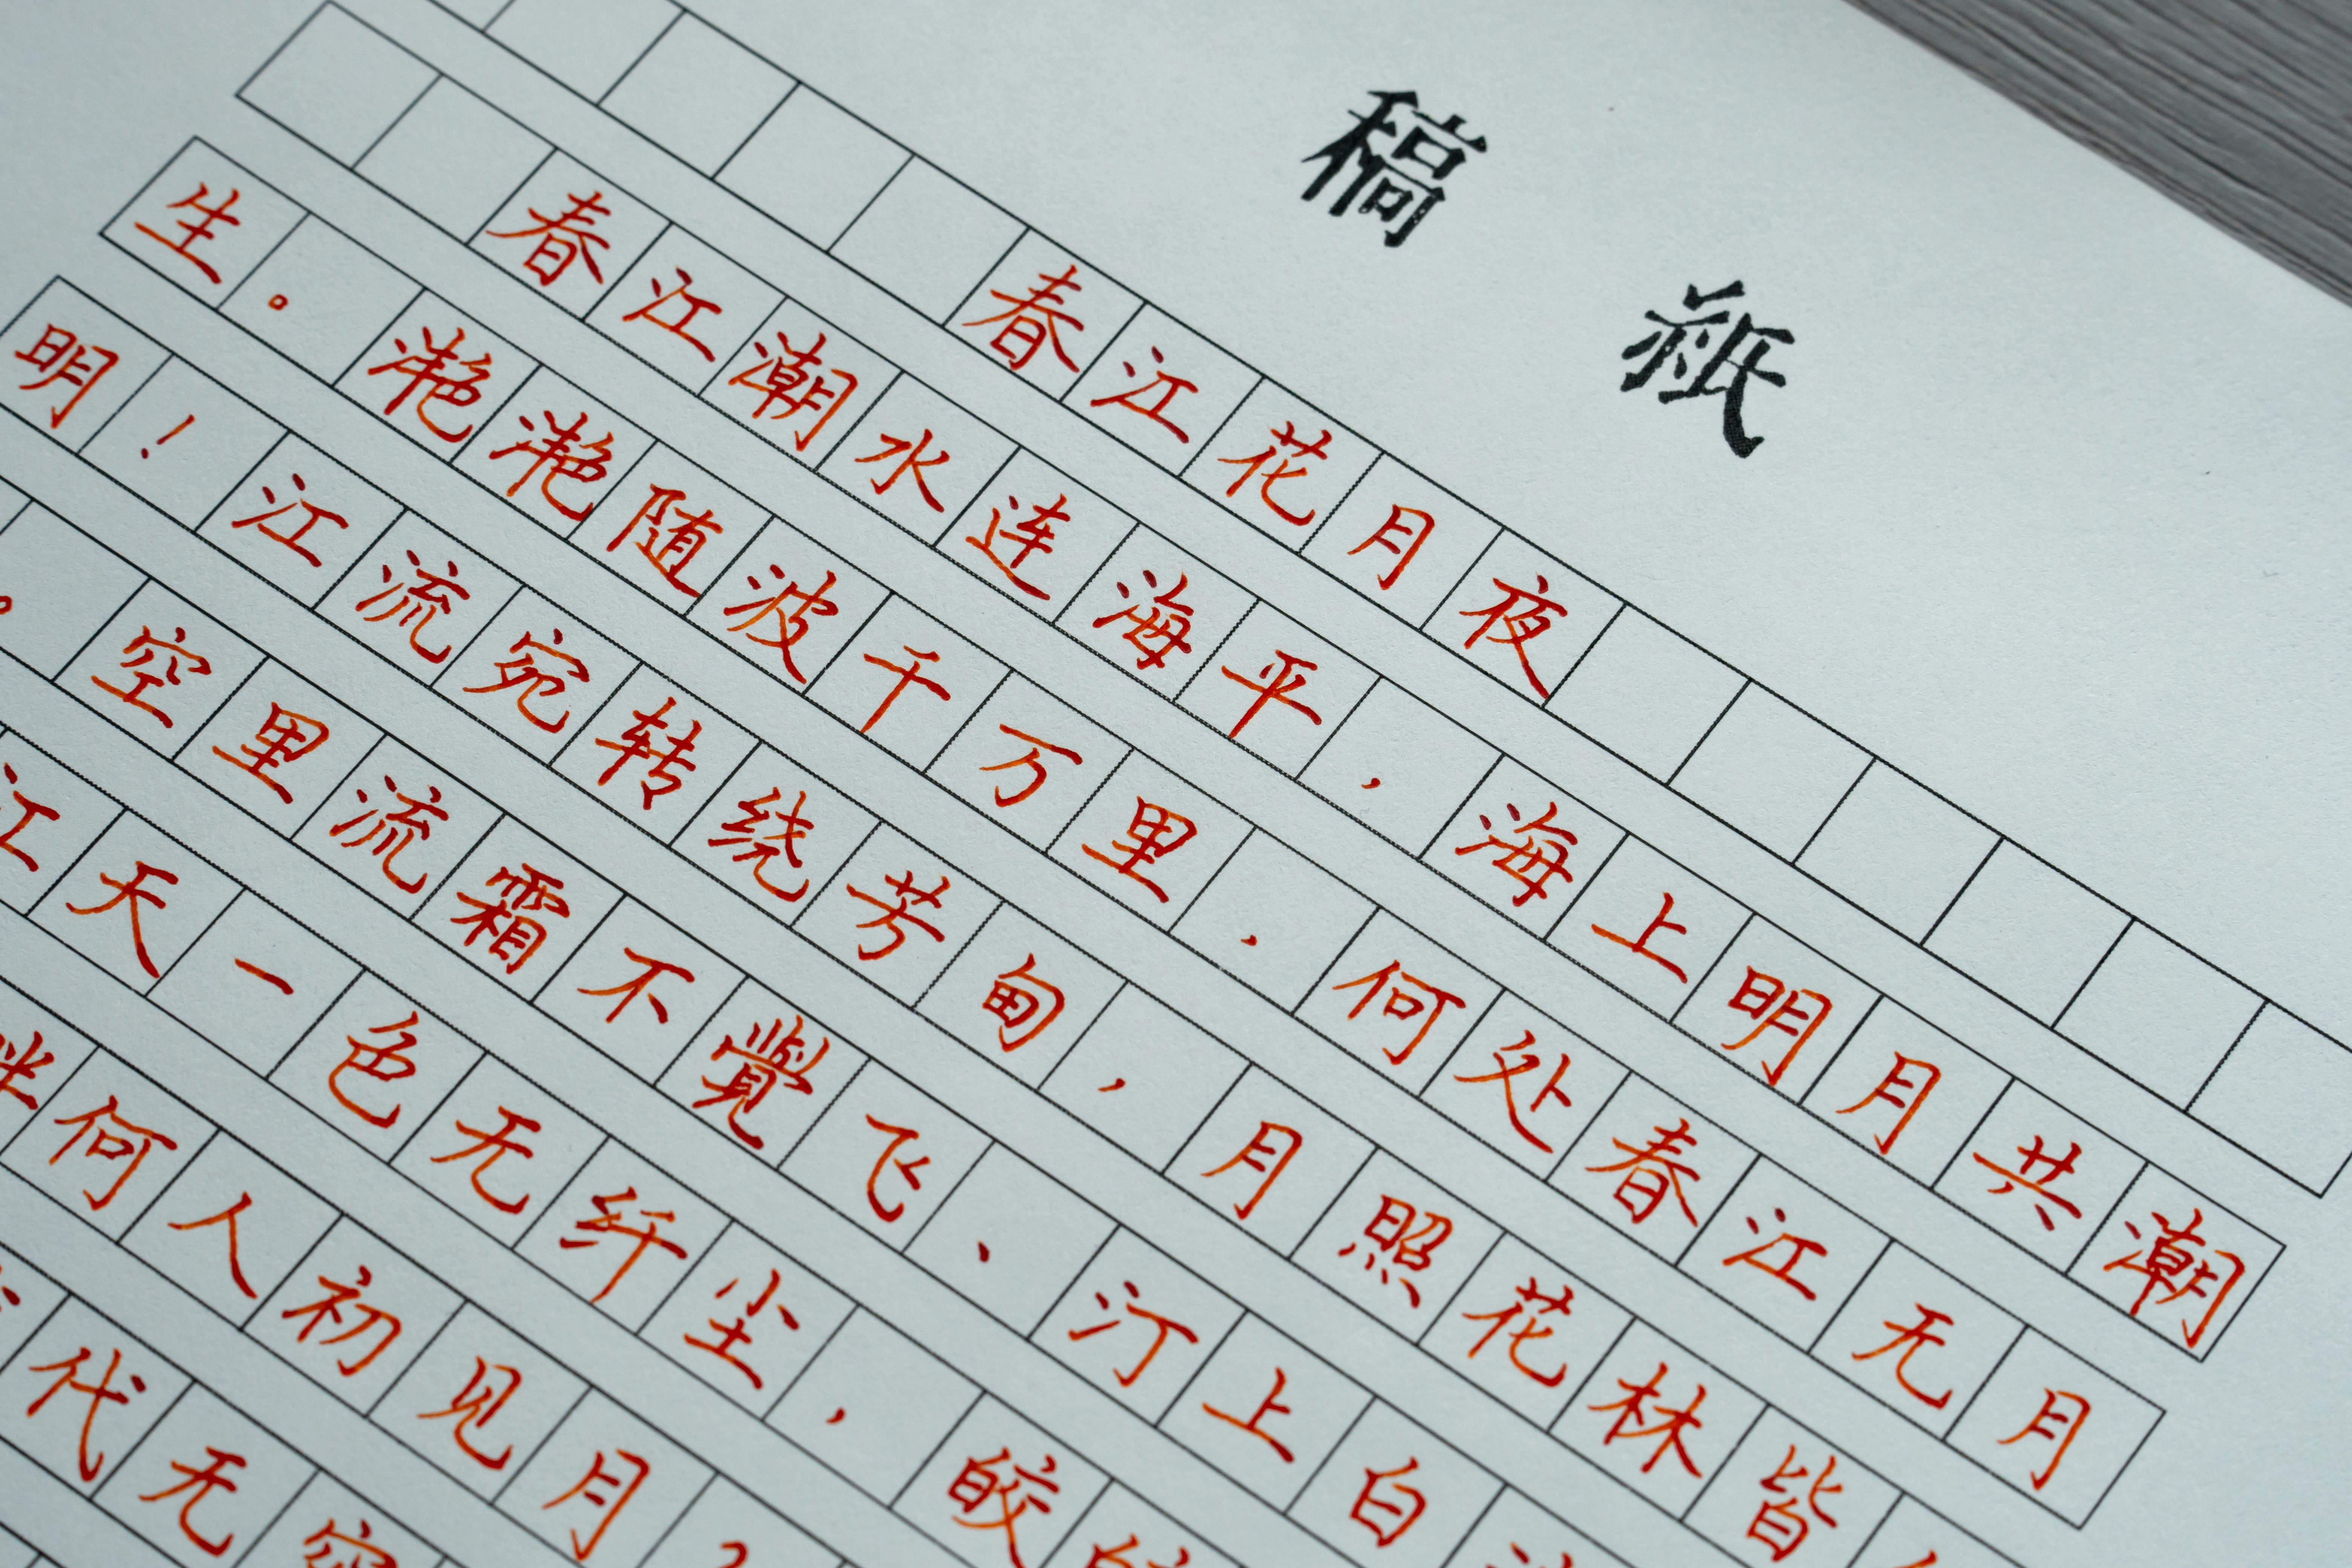 稿紙
春江花月夜
春江潮水连海平，海上明月共潮
生。滟滟随波千万里，何处春江无月
明！江流宛转绕芳甸，月照花林皆
。空里流霜不覺飞、汀上白
江天一色无纤尘，皎
畔何人初见月？
代无穷